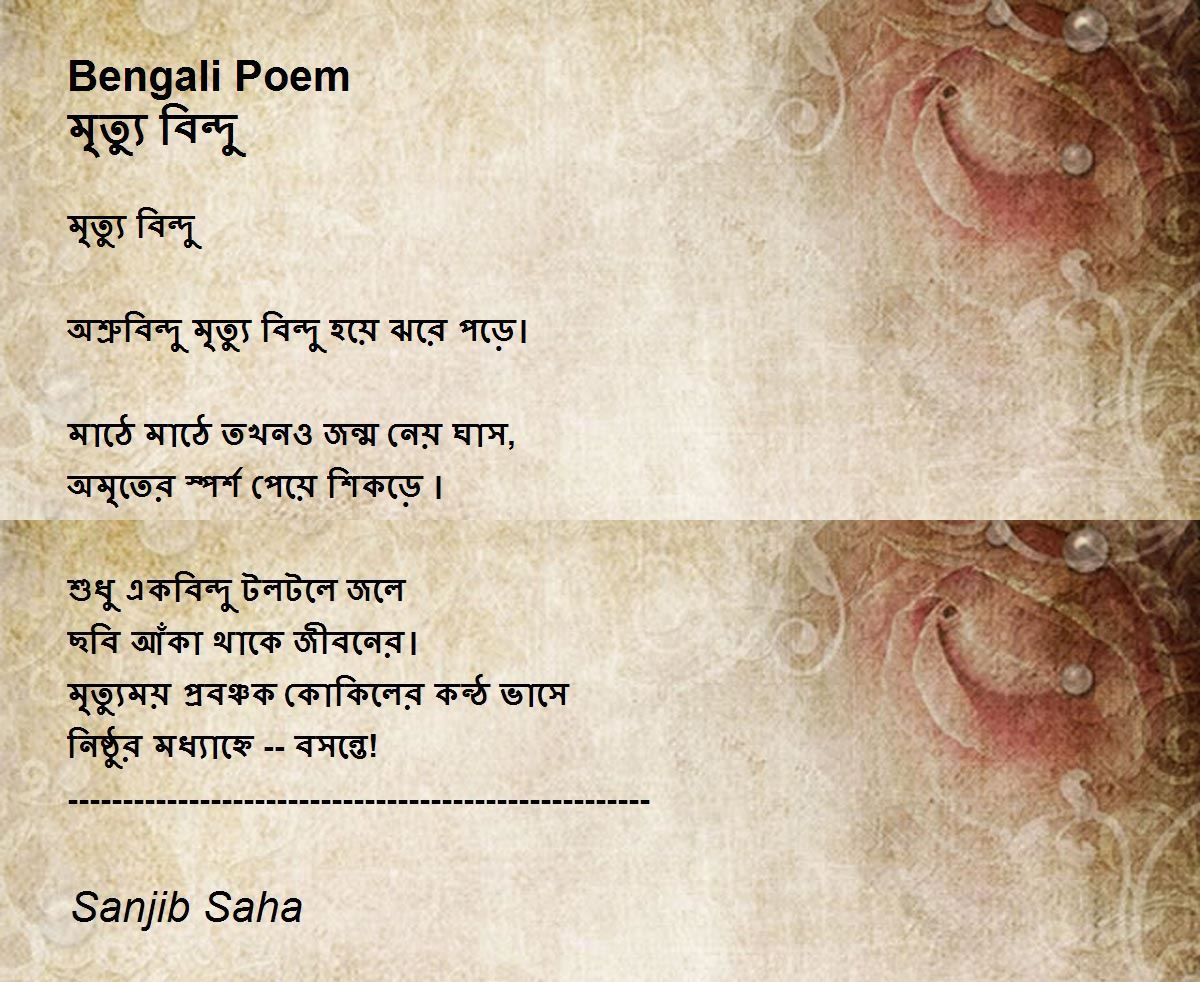 Bengali Poem
মৃত্যু বিন্দু
মৃত্যু বিন্দু
অশ্রুবিন্দু মৃত্যু বিন্দু হয়ে ঝরে পড়ে।
মাঠে মাঠে তখনও জন্ম নেয় ঘাস,
অমৃতের স্পর্শ পেয়ে শিকড়ে ।
শুধু একবিন্দু টলটলে জলে
ছবি আঁকা থাকে জীবনের।
মৃত্যুময় প্রবঞ্চক কোকিলের কন্ঠ ভাসে
নিষ্ঠুর মধ্যাহ্নে -- বসন্তে!
-----------------------------------------------------
Sanjib Saha